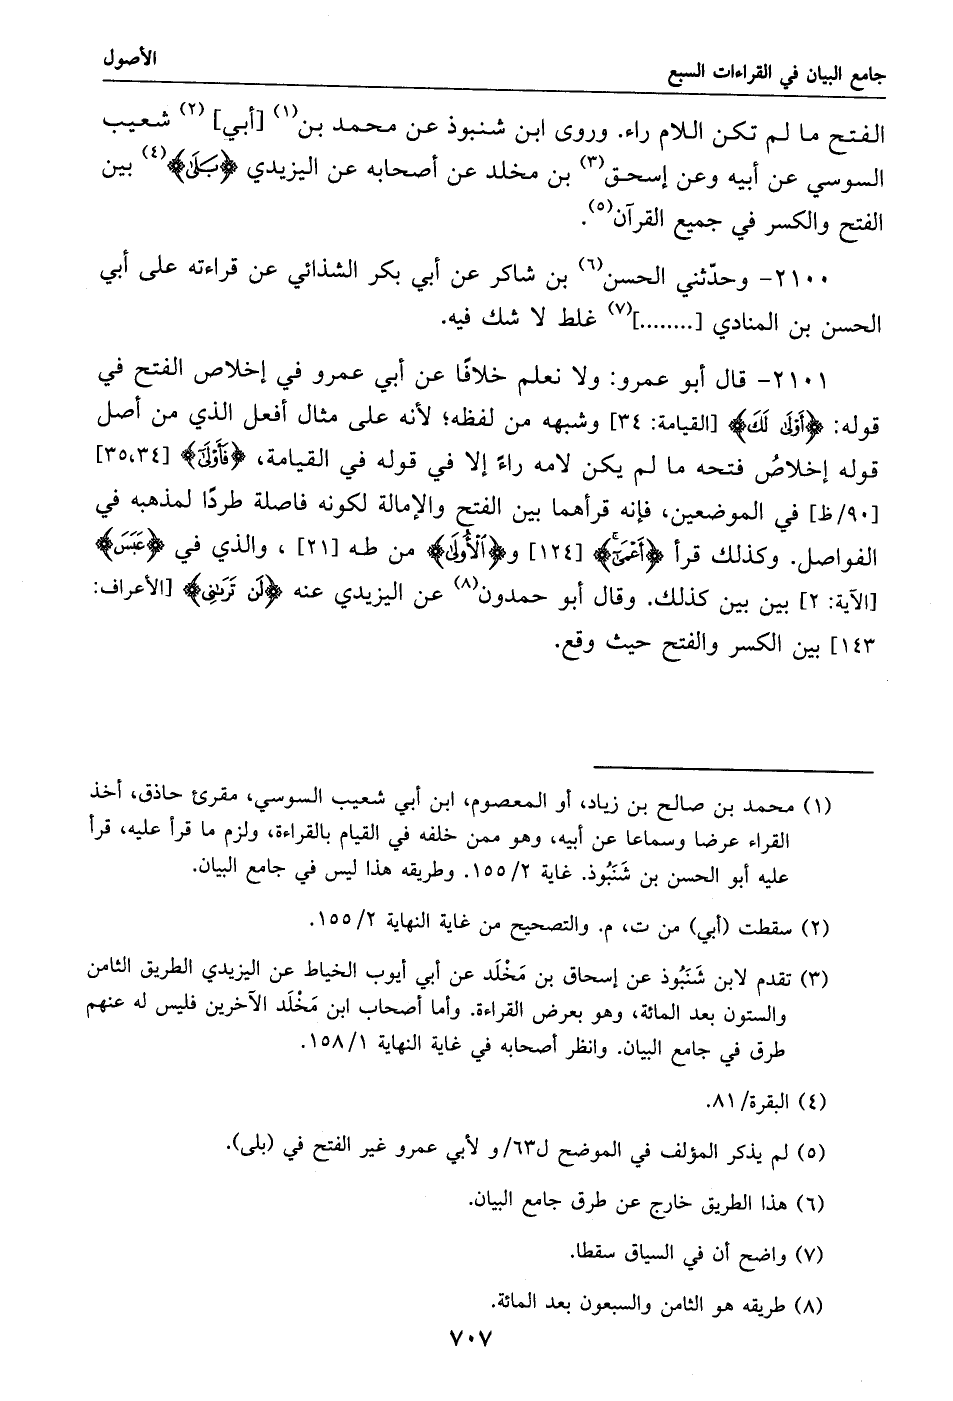 جامع البيان في القراءات السبع الأصول
الفتح ما لم تكن اللام راء. وروى ابن شنبوذ عن محمد بن(١) [أبي] (٢) شعيب
السوسي عن أبيه وعن إسحق(٣) بن مخلد عن أصحابه عن اليزيدي ﴿بَلَىٰ﴾(٤) بين
الفتح والكسر في جميع القرآن(٥).
٢١٠٠- وحدّثني الحسن(٦) بن شاكر عن أبي بكر الشذائي عن قراءته على أبي
الحسن بن المنادي [........](٧) غلط لا شك فيه.
٢١٠١- قال أبو عمرو: ولا نعلم خلافًا عن أبي عمرو في إخلاص الفتح في
قوله: ﴿أَوْلَىٰ لَكَ﴾ [القيامة: ٣٤] وشبهه من لفظه؛ لأنه على مثال أفعل الذي من أصل
قوله إخلاصُ فتحه ما لم يكن لامه راءً إلا في قوله في القيامة، ﴿فَأَوْلَىٰٓ﴾ [٣٥،٣٤]
[٩٠/ظ] في الموضعين، فإنه قرأهما بين الفتح والإمالة لكونه فاصلة طردًا لمذهبه في
الفواصل. وكذلك قرأ ﴿أَعْمَىٰٓ﴾ [١٢٤] و﴿ٱلْأُولَىٰ﴾ من طه [٢١] ، والذي في ﴿عَبَسَ﴾
[الآية: ٢] بين بين كذلك. وقال أبو حمدون(٨) عن اليزيدي عنه ﴿لَن تَرَىٰنِى﴾ [الأعراف:
١٤٣] بين الكسر والفتح حيث وقع.
(١) محمد بن صالح بن زياد، أو المعصوم، ابن أبي شعيب السوسي، مقرئ حاذق، أخذ
القراء عرضا وسماعا عن أبيه، وهو ممن خلفه في القيام بالقراءة، ولزم ما قرأ عليه، قرأ
عليه أبو الحسن بن شَنَبُوذ. غاية ٢/ ١٥٥. وطريقه هذا ليس في جامع البيان.
(٢) سقطت (أبي) من ت، م. والتصحيح من غاية النهاية ٢/ ١٥٥.
(٣) تقدم لابن شَنَبُوذ عن إسحاق بن مَخْلَد عن أبي أيوب الخياط عن اليزيدي الطريق الثامن
والستون بعد المائة، وهو بعرض القراءة. وأما أصحاب ابن مَخْلَد الآخرين فليس له عنهم
طرق في جامع البيان. وانظر أصحابه في غاية النهاية ١/ ١٥٨.
(٤) البقرة/ ٨١.
(٥) لم يذكر المؤلف في الموضح ل٦٣/ و لأبي عمرو غير الفتح في (بلى).
(٦) هذا الطريق خارج عن طرق جامع البيان.
(٧) واضح أن في السياق سقطا.
(٨) طريقه هو الثامن والسبعون بعد المائة.
٧٠٧